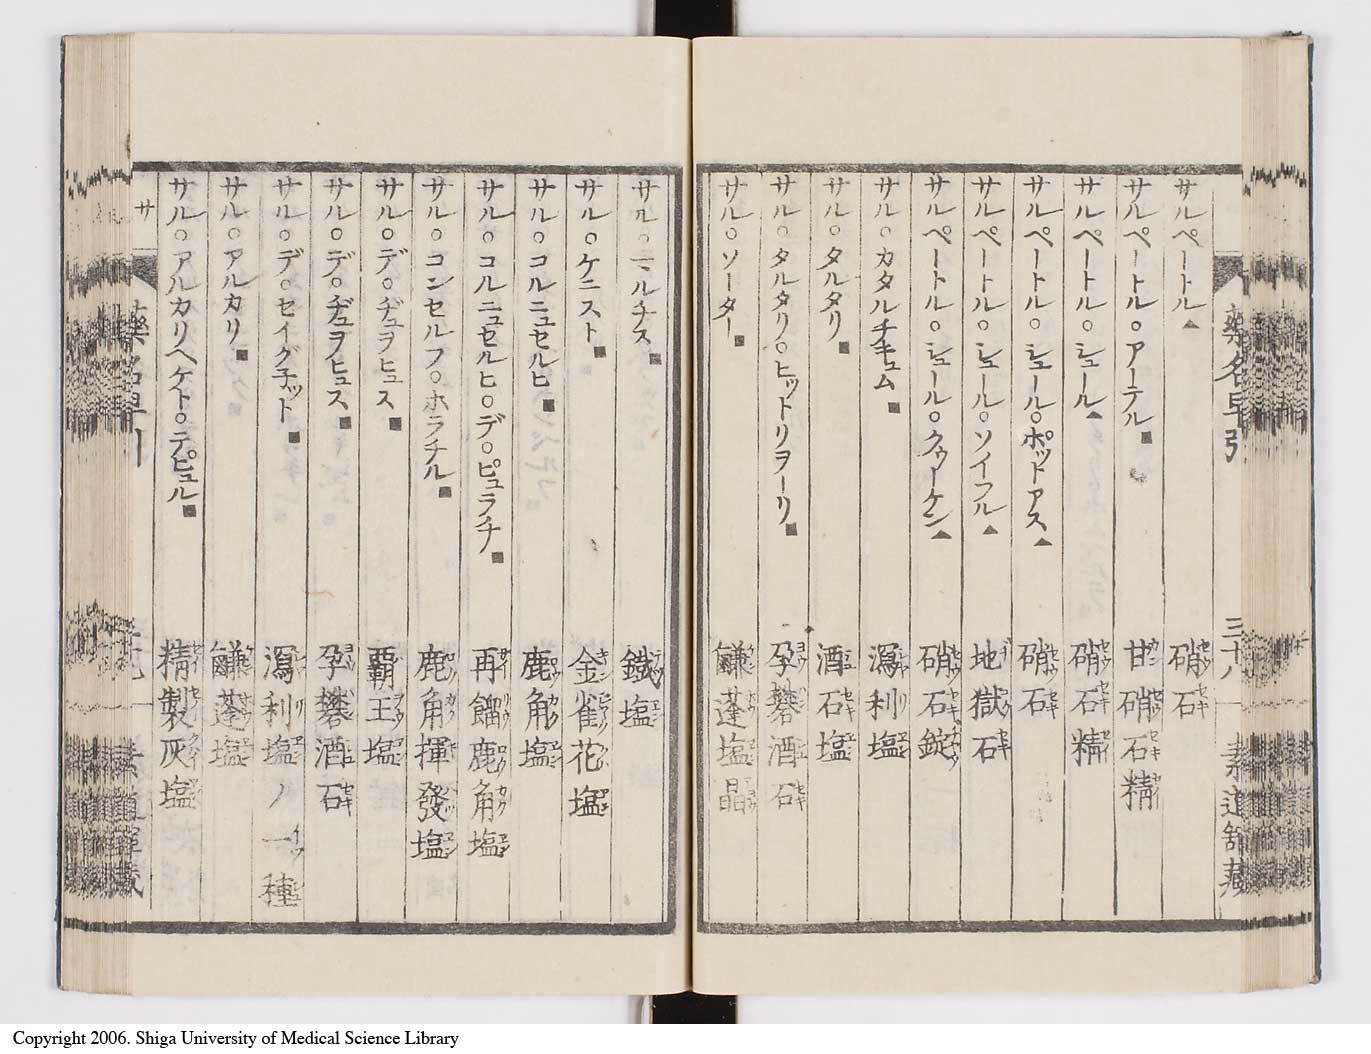 藥名早引
三十八
素道館藏
サルペートル▲ 硝石
サルペートル○アーテル■ 甘硝石精
サルペートル○シュール▲ 硝石精
サルペートル○シュール○ポッドアス▲ 硝石
サルペートル○シュール○ソイフル▲ 地獄石
サルペートル○シュール○クゥーケン▲ 硝石錠
サル○カタルチキュム■ 瀉利塩
サル○タルタリ■ 酒石塩
サル○タルタリ○ヒットリヲーリ■ 孕礬酒石
サル○ソーター■ 鹻蓬塩晶
サル○マルチス■ 鐵塩
サル○ケニスト■ 金雀花塩
サル○コルニュセルヒ■ 鹿角塩
サル○コルニュセルヒ○デ○ピュラチ■ 再餾鹿角塩
サル○コンセルフ○ホラチル■ 鹿角揮發塩
サル○デ○ヂュヲヒュス■ 覇王塩
サル○デ○ヂュヲヒュス■ 孕礬酒石
サル○デ○セイグネット■ 瀉利塩ノ一種
サル○アルカリ■ 鹻蓬塩
サル○アルカリヘケト○テピュル■ 精製灰塩
サ
Copyright 2006. Shiga University of Medical Science Library